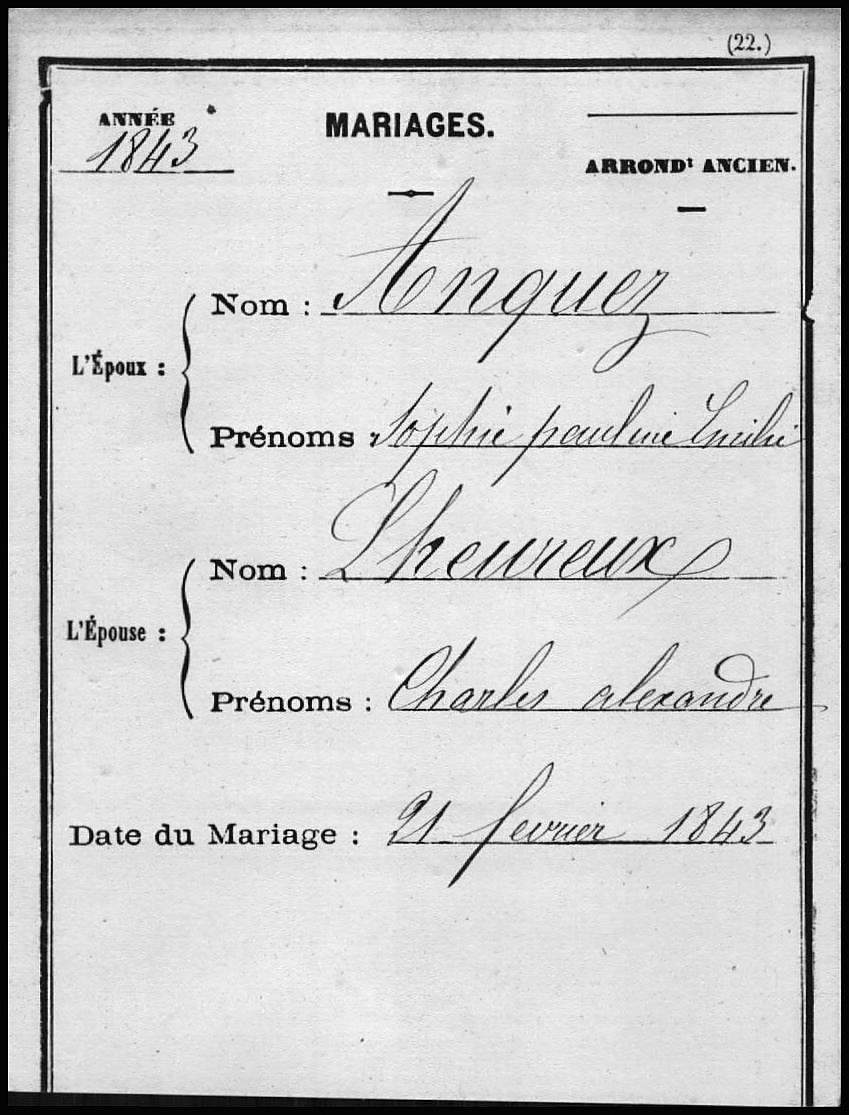 (22.)
ANNÉE
1843
MARIAGES.
ARRONDt ANCIEN.
Nom : Anquez
L'Époux :
Prénoms : Sophie pauline Emilie
Nom : Lheureux
L'Épouse :
Prénoms : Charles alexandre
Date du Mariage : 21 fevrier 1843